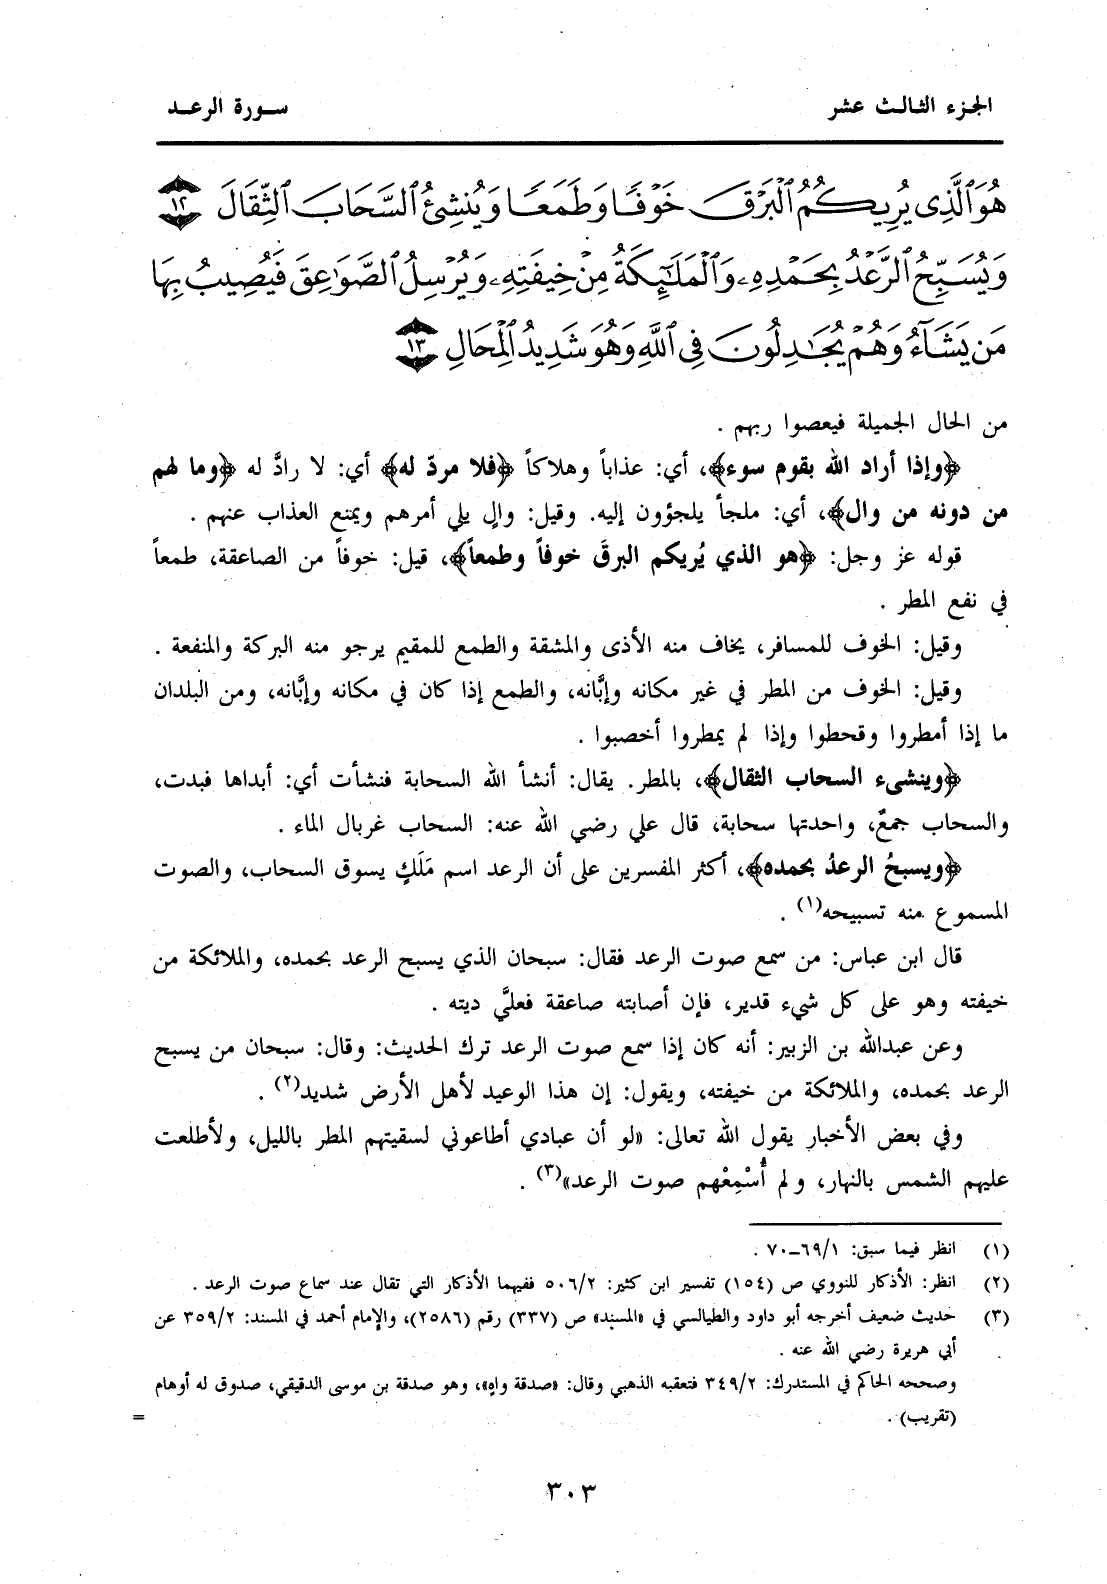 الجزء الثالث عشر
سورة الرعد
هُوَ ٱلَّذِى يُرِيكُمُ ٱلْبَرْقَ خَوْفًا وَطَمَعًا وَيُنشِئُ ٱلسَّحَابَ ٱلثِّقَالَ ١٢
وَيُسَبِّحُ ٱلرَّعْدُ بِحَمْدِهِۦ وَٱلْمَلَٰٓئِكَةُ مِنْ خِيفَتِهِۦ وَيُرْسِلُ ٱلصَّوَٰعِقَ فَيُصِيبُ بِهَا
مَن يَشَآءُ وَهُمْ يُجَٰدِلُونَ فِى ٱللَّهِ وَهُوَ شَدِيدُ ٱلْمِحَالِ ١٣
من الحال الجميلة فيعصوا ربهم .
﴿وإذا أراد الله بقوم سوء﴾، أي: عذاباً وهلاكاً ﴿فلا مردّ له﴾ أي: لا رادَّ له ﴿وما لهم
من دونه من وال﴾، أي: ملجأ يلجؤون إليه. وقيل: والٍ يلي أمرهم ويمنع العذاب عنهم .
قوله عز وجل: ﴿هو الذي يُريكم البرقَ خوفاً وطمعاً﴾، قيل: خوفاً من الصاعقة، طمعاً
في نفع المطر .
وقيل: الخوف للمسافر، يخاف منه الأذى والمشقة والطمع للمقيم يرجو منه البركة والمنفعة .
وقيل: الخوف من المطر في غير مكانه وإبَّانه، والطمع إذا كان في مكانه وإبَّانه، ومن البلدان
ما إذا أمطروا وقحطوا وإذا لم يمطروا أخصبوا .
﴿وينشىء السحاب الثقال﴾، بالمطر. يقال: أنشأ الله السحابة فنشأت أي: أبداها فبدت،
والسحاب جمعٌ، واحدتها سحابة، قال علي رضي الله عنه: السحاب غربال الماء .
﴿ويسبحُ الرعدُ بحمده﴾، أكثر المفسرين على أن الرعد اسم مَلَكٍ يسوق السحاب، والصوت
المسموع منه تسبيحه(١) .
قال ابن عباس: من سمع صوت الرعد فقال: سبحان الذي يسبح الرعد بحمده، والملائكة من
خيفته وهو على كل شيء قدير، فإن أصابته صاعقة فعليَّ ديته .
وعن عبدالله بن الزبير: أنه كان إذا سمع صوت الرعد ترك الحديث: وقال: سبحان من يسبح
الرعد بحمده، والملائكة من خيفته، ويقول: إن هذا الوعيد لأهل الأرض شديد(٢) .
وفي بعض الأخبار يقول الله تعالى: «لو أن عبادي أطاعوني لسقيتهم المطر بالليل، ولأطلعت
عليهم الشمس بالنهار، ولم أُسْمِعْهم صوت الرعد»(٣) .
(١) انظر فيما سبق: ٦٩/١ـ٧٠ .
(٢) انظر: الأذكار للنووي ص (١٥٤) تفسير ابن كثير: ٥٠٦/٢ ففيهما الأذكار التي تقال عند سماع صوت الرعد .
(٣) حديث ضعيف أخرجه أبو داود والطيالسي في «المسند» ص (٣٣٧) رقم (٢٥٨٦)، والإمام أحمد في المسند: ٣٥٩/٢ عن
أبي هريرة رضي الله عنه .
وصححه الحاكم في المستدرك: ٣٤٩/٢ فتعقبه الذهبي وقال: «صدقة واهٍ»، وهو صدقة بن موسى الدقيقي، صدوق له أوهام
(تقريب) . =
٣٠٣